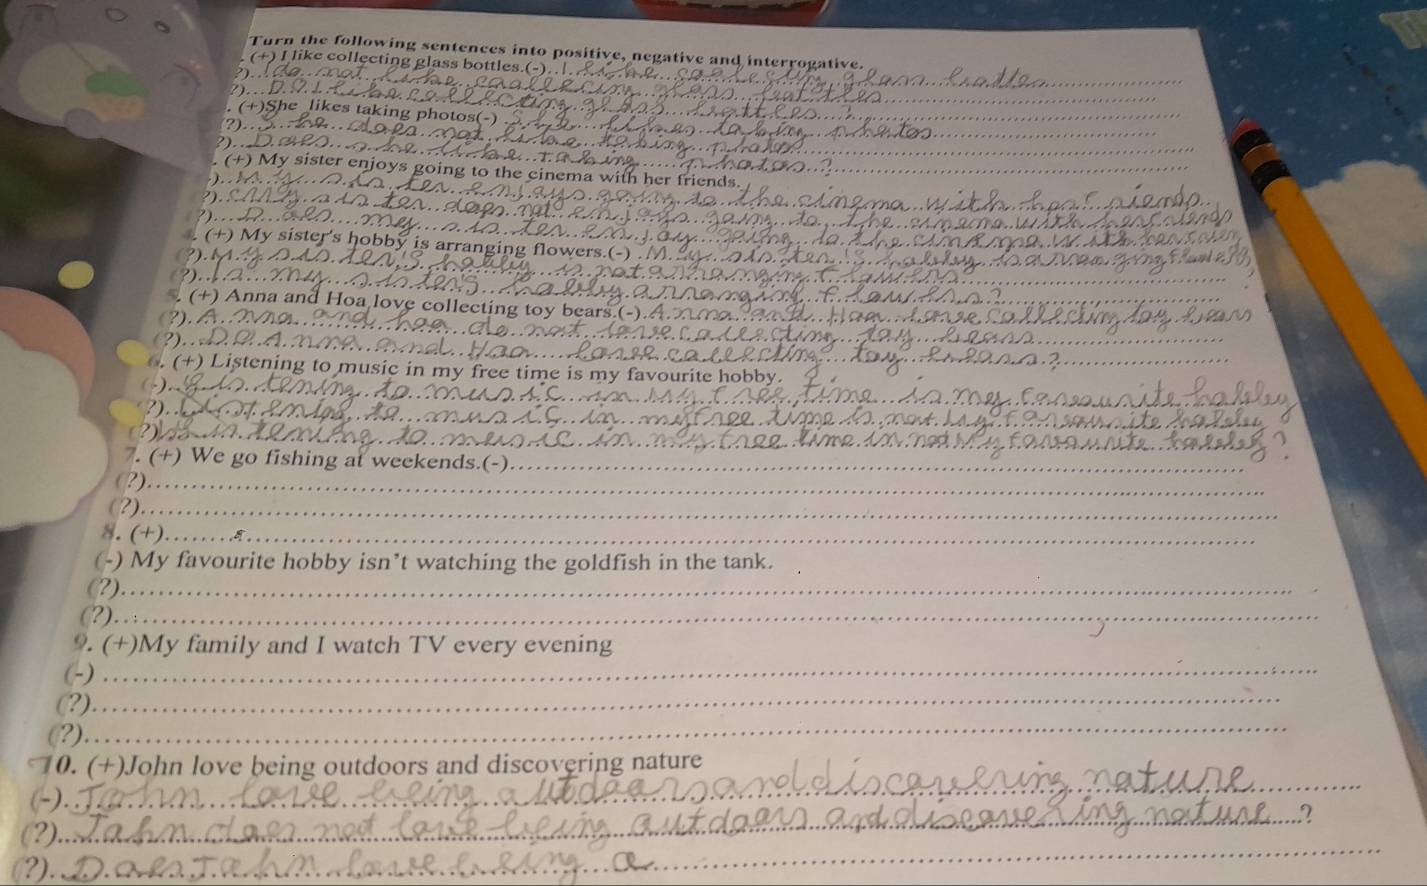 Turn the following sentences into positive, negative and interrogative.
. (+) I like collecting glass bottles.(-)..I like collecting glass bottles
?)..I do not like coollecting glass bottles
?)...Do I like collecting glass bottles...?
. (+)She likes taking photos(-) ..She likes taking photos
?)...She does not like taking photos
?)..Does she like taking photos..?
. (+) My sister enjoys going to the cinema with her friends.
)..My sister enjays going to the cinema with her friends..
?).
sister does not enjays going to the cinema with her friends
?)...Does my sister enjoy going to the cinema with her
. (+) My sister's hobby is arranging flowers.(-) .My sister's hobby is arranging flowers
?).My sister's hobby is not arranging flowers
?)..Is my sister's hobby arranging flowers?
5. (+) Anna and Hoa love collecting toy bears.(-).Anna and Hoa love collecting toy bears
(?).Anna and hoa do not love collecting toy bears
(?)..Do Anna and Hoa love collecting toy bears..?
6. (+) Listening to music in my free time is my favourite hobby.
(-)..listening to music in my free time is my favourite hobby
?)..Listening to music in my free time is not my favounite hobby
(?)listening to music in my free time is not my favounite hobby?
7. (+) We go fishing at weekends.(-)
(?)
(?)
8. (+)
(-) My favourite hobby isn't watching the goldfish in the tank.
(?)
(?)
9. (+)My family and I watch TV every evening
(-)
(?)
(?)
10. (+)John love being outdoors and discovering nature
(-).John love being outdoors and discovering nature
(?)..John does not love being outdoors and discovering nature...?
(?)..Does John love being o